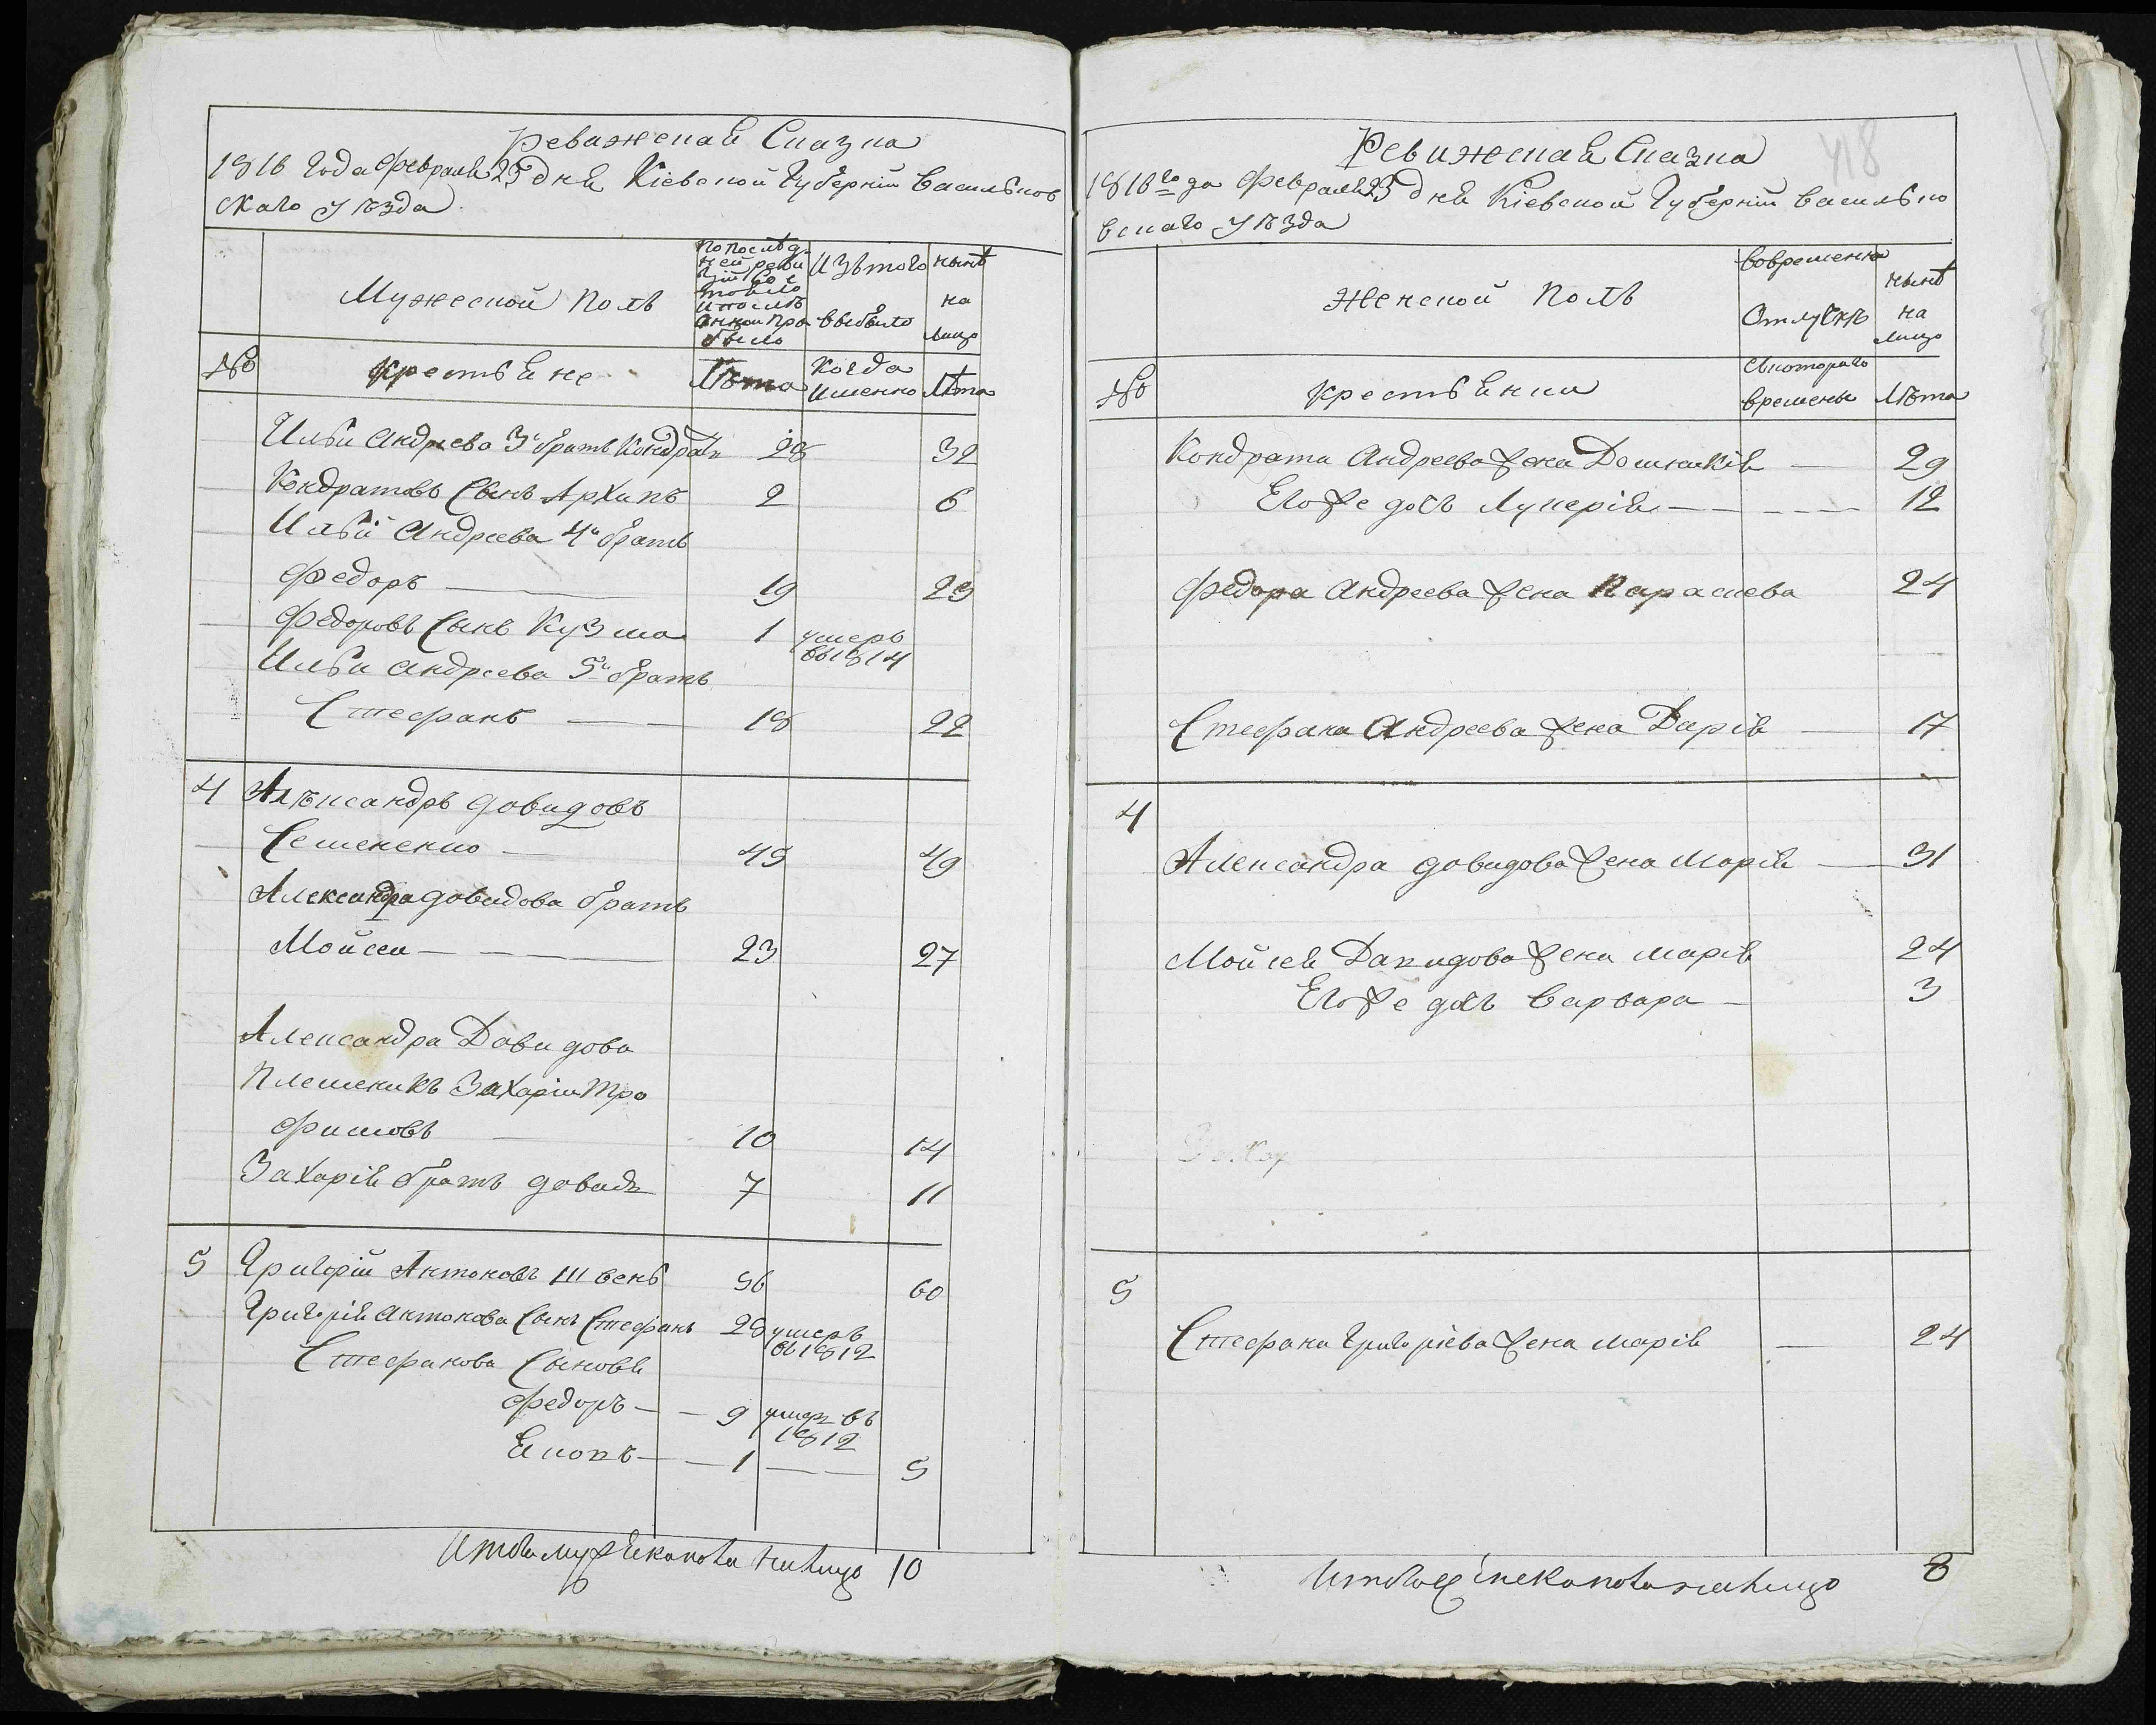 Ревижская Сказка
1816 Года Февраля 25 дня Кіевской Губерніи Васильков
скаго Уѣзда
Мужеской Полъ
По послѣд
ней реви
зіи со
стояло
и послѣ
оной при
было
Изъ того
выбыло
нынѣ
на
лицо
№
Крестьяне
Лѣта
Когда
именно
Лѣта
Ильи Андреева 3й братъ Кондратъ 28 32
Кондратовъ Сынъ Архипъ 2 6
Ильи Андреева 4й братъ
Федоръ 19 23
Федоровъ Сынъ Кузма 1 умеръ
въ 1814
Ильи Андреева 5й братъ
Стефанъ 18 22
4 Алѣксандръ Довидовъ
Семененко 45 49
Александра Довидова братъ
Мойсей 23 27
Александра Довидова
Племеникъ Захарій Тро
фимовъ 10 14
Захарія братъ Довидъ 7 11
5 Григорій Антоновъ Швецъ 56 60
Григорія Антонова Сынъ Стефанъ 28 умеръ
въ 1812
Стефанова Сыновя
Федоръ 9 умеръ въ
1812
Яковъ 1 5
Итого мужеска пола на лицо 10
418
Ревижская Сказка
1816 го да Февраля 25 дня Кіевской Губерніи Василько
вскаго Уѣзда
Женской Полъ
Вовремено
Отлучкѣ
нынѣ
на
лицо
№
Крестьянки
Съ котораго
времены
Лѣта
Кондрата Андреева жена Домникія 29
Его же дочь Лукерія 12
Федора Андреева жена Параскева 24
Стефана Андреева жена Дарія 17
4
Александра Довидова жена Марія 31
Мойсея Давидова жена Марія 24
Его же дочь Варвара 3
Захар
5
Стефана Григоріева жена Марія 24
Итого женска пола на лицо 8